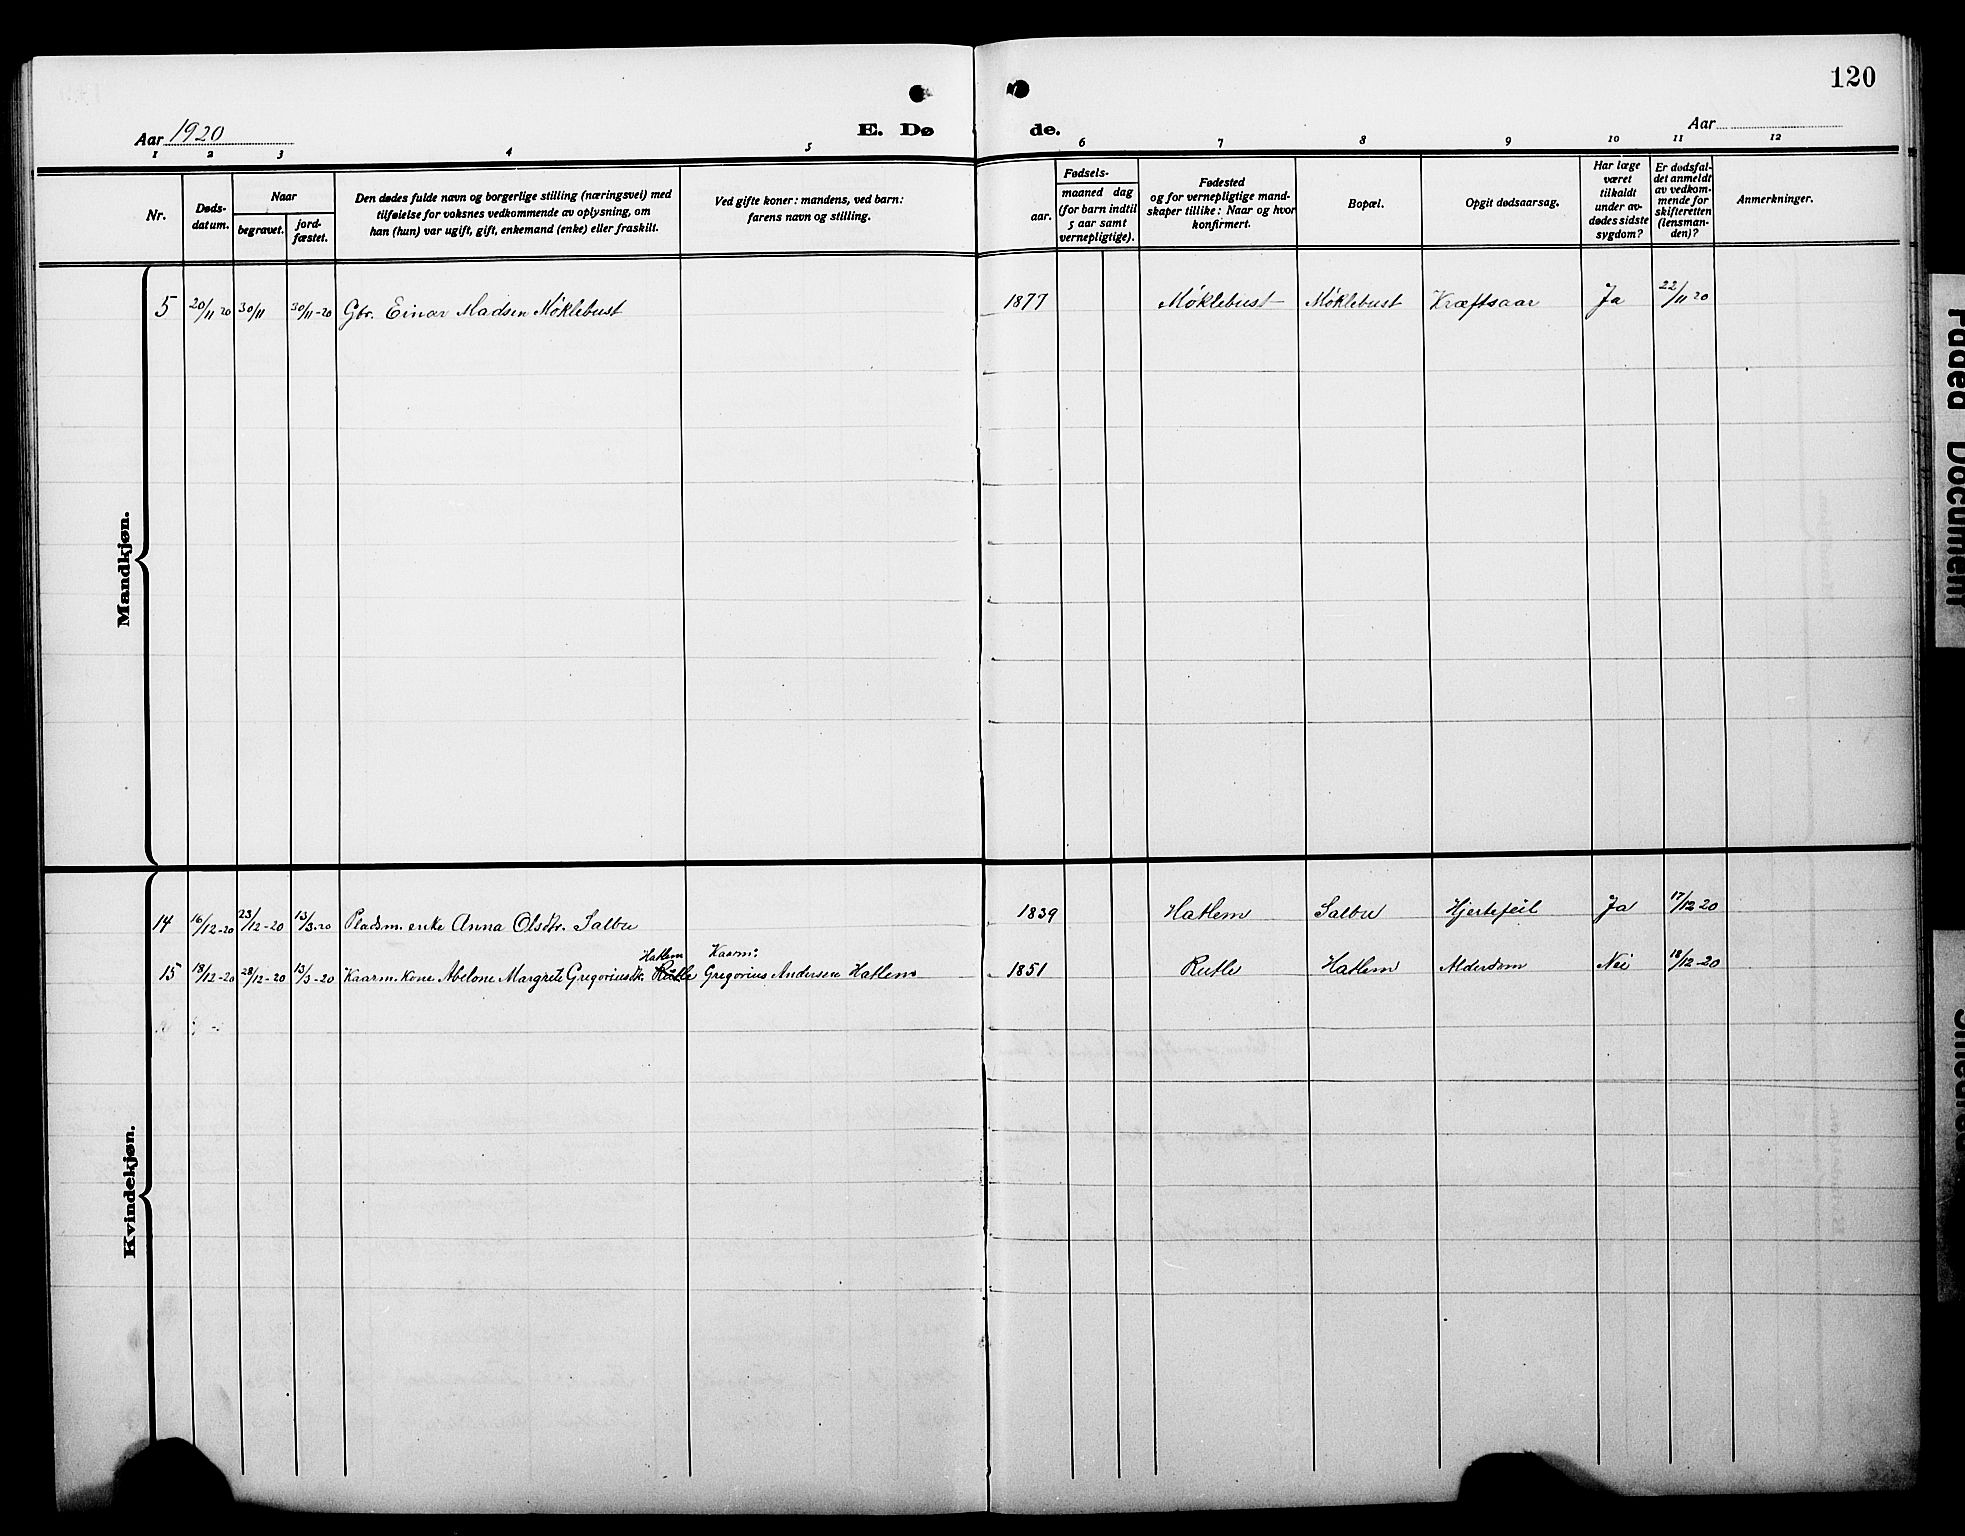 120
Aar 1920
E. Døde.
Aar
1 2 3 4 5 6 7 8 9 10 11 12
Nr.
Døds-
datum.
Naar
begravet.
jord-
fæstet.
Den dødes fulde navn og borgerlige stilling (næringsvei) med
tilføielse for voksnes vedkommende av oplysning, om
han (hun) var ugift, gift, enkemand (enke) eller fraskilt.
Ved gifte koner: mandens, ved barn:
farens navn og stilling.
Fødsels-
aar.
maaned dag
(for barn indtil
5 aar samt
vernepligtige).
Fødested
og for vernepligtige mand-
skaper tillike: Naar og hvor
konfirmert.
Bopæl.
Opgit dødsaarsag.
Har læge
været
tilkaldt
under av-
dødes sidste
sygdom?
Er dødsfal-
det anmeldt
av vedkom-
mende for
skifteretten
(lensman-
den)?
Anmerkninger.
Mandkjøn.
5 20/11 20 30/11 30/11-20 Gbr. Einar Madsen Møklebust 1877 Møklebust Møklebust Kræftsaar Ja 22/11 20
Kvindekjøn.
14 16/12-20 23/12-20 13/3-20 Pladsm. enke Anna Olsdtr. Salbu 1839 Hatlem Salbu Hjertefeil Ja 17/12 20
Hatlem Kaarm:
15 18/12-20 28/12-20 13/3-20 Kaarm. kone Abelone Margrete Gregoriusdtr. Rutle Gregorius Andersen Hatlem 1851 Rutle Hatlem Alderdom Nei 18/12-20
Faded Document